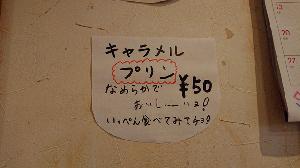 キャラメル
プリン
¥50
なめらかで
おいしーいョ!
いっぺん食べてみてチョ!